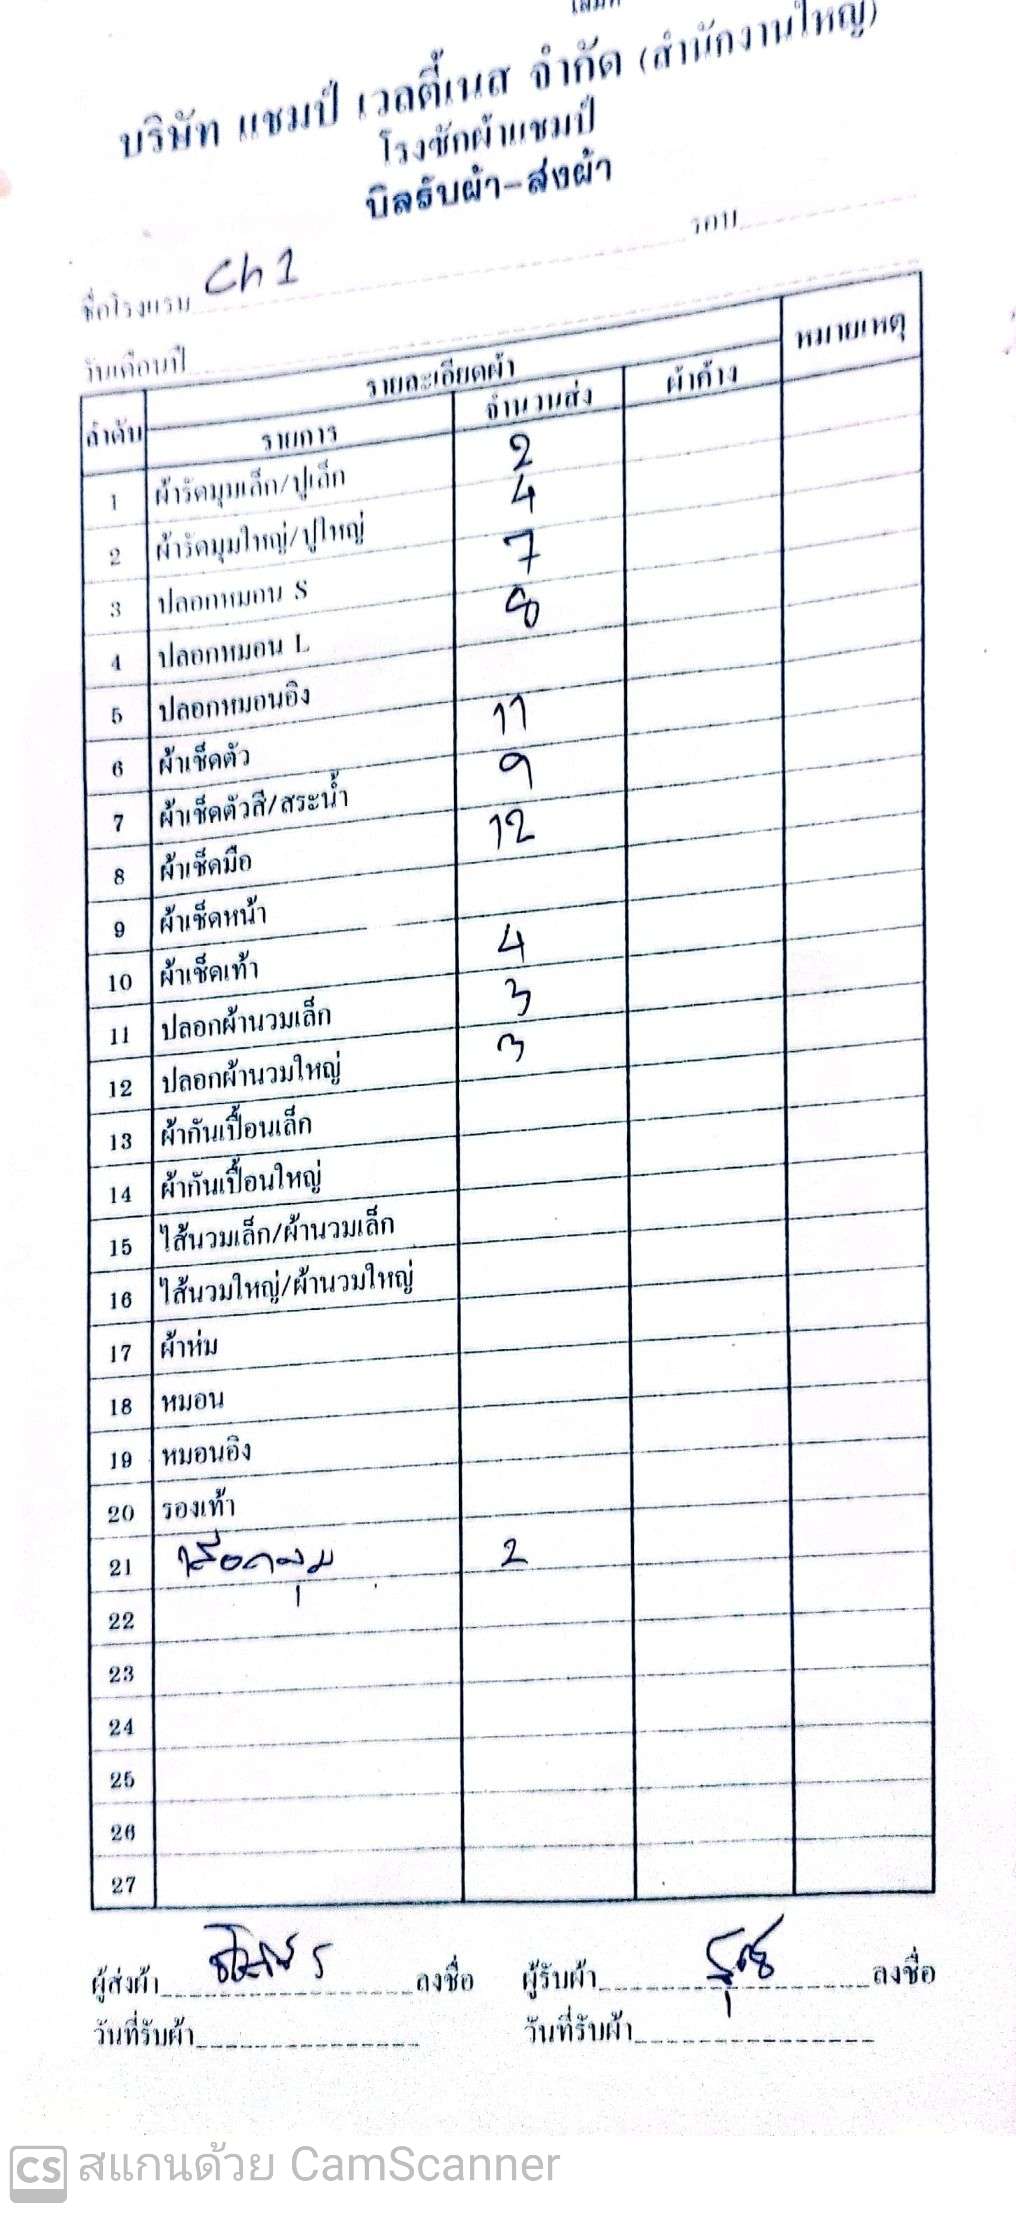 บริษัท แชมป์ เวลตี้เนส จำกัด (สำนักงานใหญ่)
โรงซักผ้าแชมป์
บิลรับผ้า-ส่งผ้า
ชื่อโรงแรม Ch 1 รอบ
วันเดือนปี
ลำดับ รายละเอียดผ้า หมายเหตุ
รายการ จำนวนส่ง ผ้าค้าง
1 ผ้ารัดมุมเล็ก/ปูเล็ก 2
2 ผ้ารัดมุมใหญ่/ปูใหญ่ 4
3 ปลอกหมอน S 7
4 ปลอกหมอน L 8
5 ปลอกหมอนอิง
6 ผ้าเช็ดตัว 11
7 ผ้าเช็ดตัวสี/สระน้ำ 9
8 ผ้าเช็ดมือ 12
9 ผ้าเช็ดหน้า
10 ผ้าเช็ดเท้า 4
11 ปลอกผ้านวมเล็ก 3
12 ปลอกผ้านวมใหญ่ 3
13 ผ้ากันเปื้อนเล็ก
14 ผ้ากันเปื้อนใหญ่
15 ไส้นวมเล็ก/ผ้านวมเล็ก
16 ไส้นวมใหญ่/ผ้านวมใหญ่
17 ผ้าห่ม
18 หมอน
19 หมอนอิง
20 รองเท้า
21 2
22
23
24
25
26
27
ผู้ส่งผ้า ลงชื่อ ผู้รับผ้า ลงชื่อ
วันที่รับผ้า วันที่รับผ้า
CS สแกนด้วย CamScanner